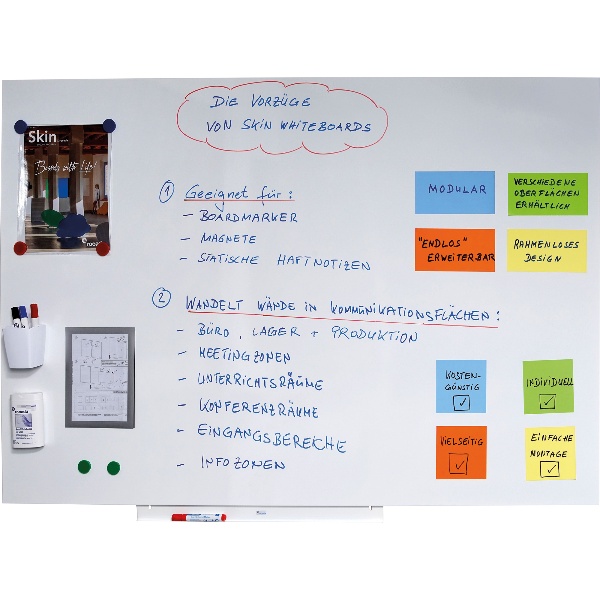 DIE VORZÜGE
VON SKIN WHITEBOARDS
Skin
Boards with Life!
1 GEEIGNET FÜR:
- BOARDMARKER
- MAGNETE
- STATISCHE HAFTNOTIZEN
2 WANDELT WÄNDE IN KOMMUNIKATIONSFLÄCHEN:
- BÜRO, LAGER + PRODUKTION
- MEETINGZONEN
- UNTERRICHTSRÄUME
- KONFERENZRÄUME
- EINGANGSBEREICHE
- INFOZONEN
MODULAR
VERSCHIEDENE
OBERFLÄCHEN
ERHÄLTLICH
"ENDLOS"
ERWEITERBAR
RAHMENLOSES
DESIGN
KOSTEN-
GÜNSTIG
INDIVIDUELL
VIELSEITIG
EINFACHE
MONTAGE